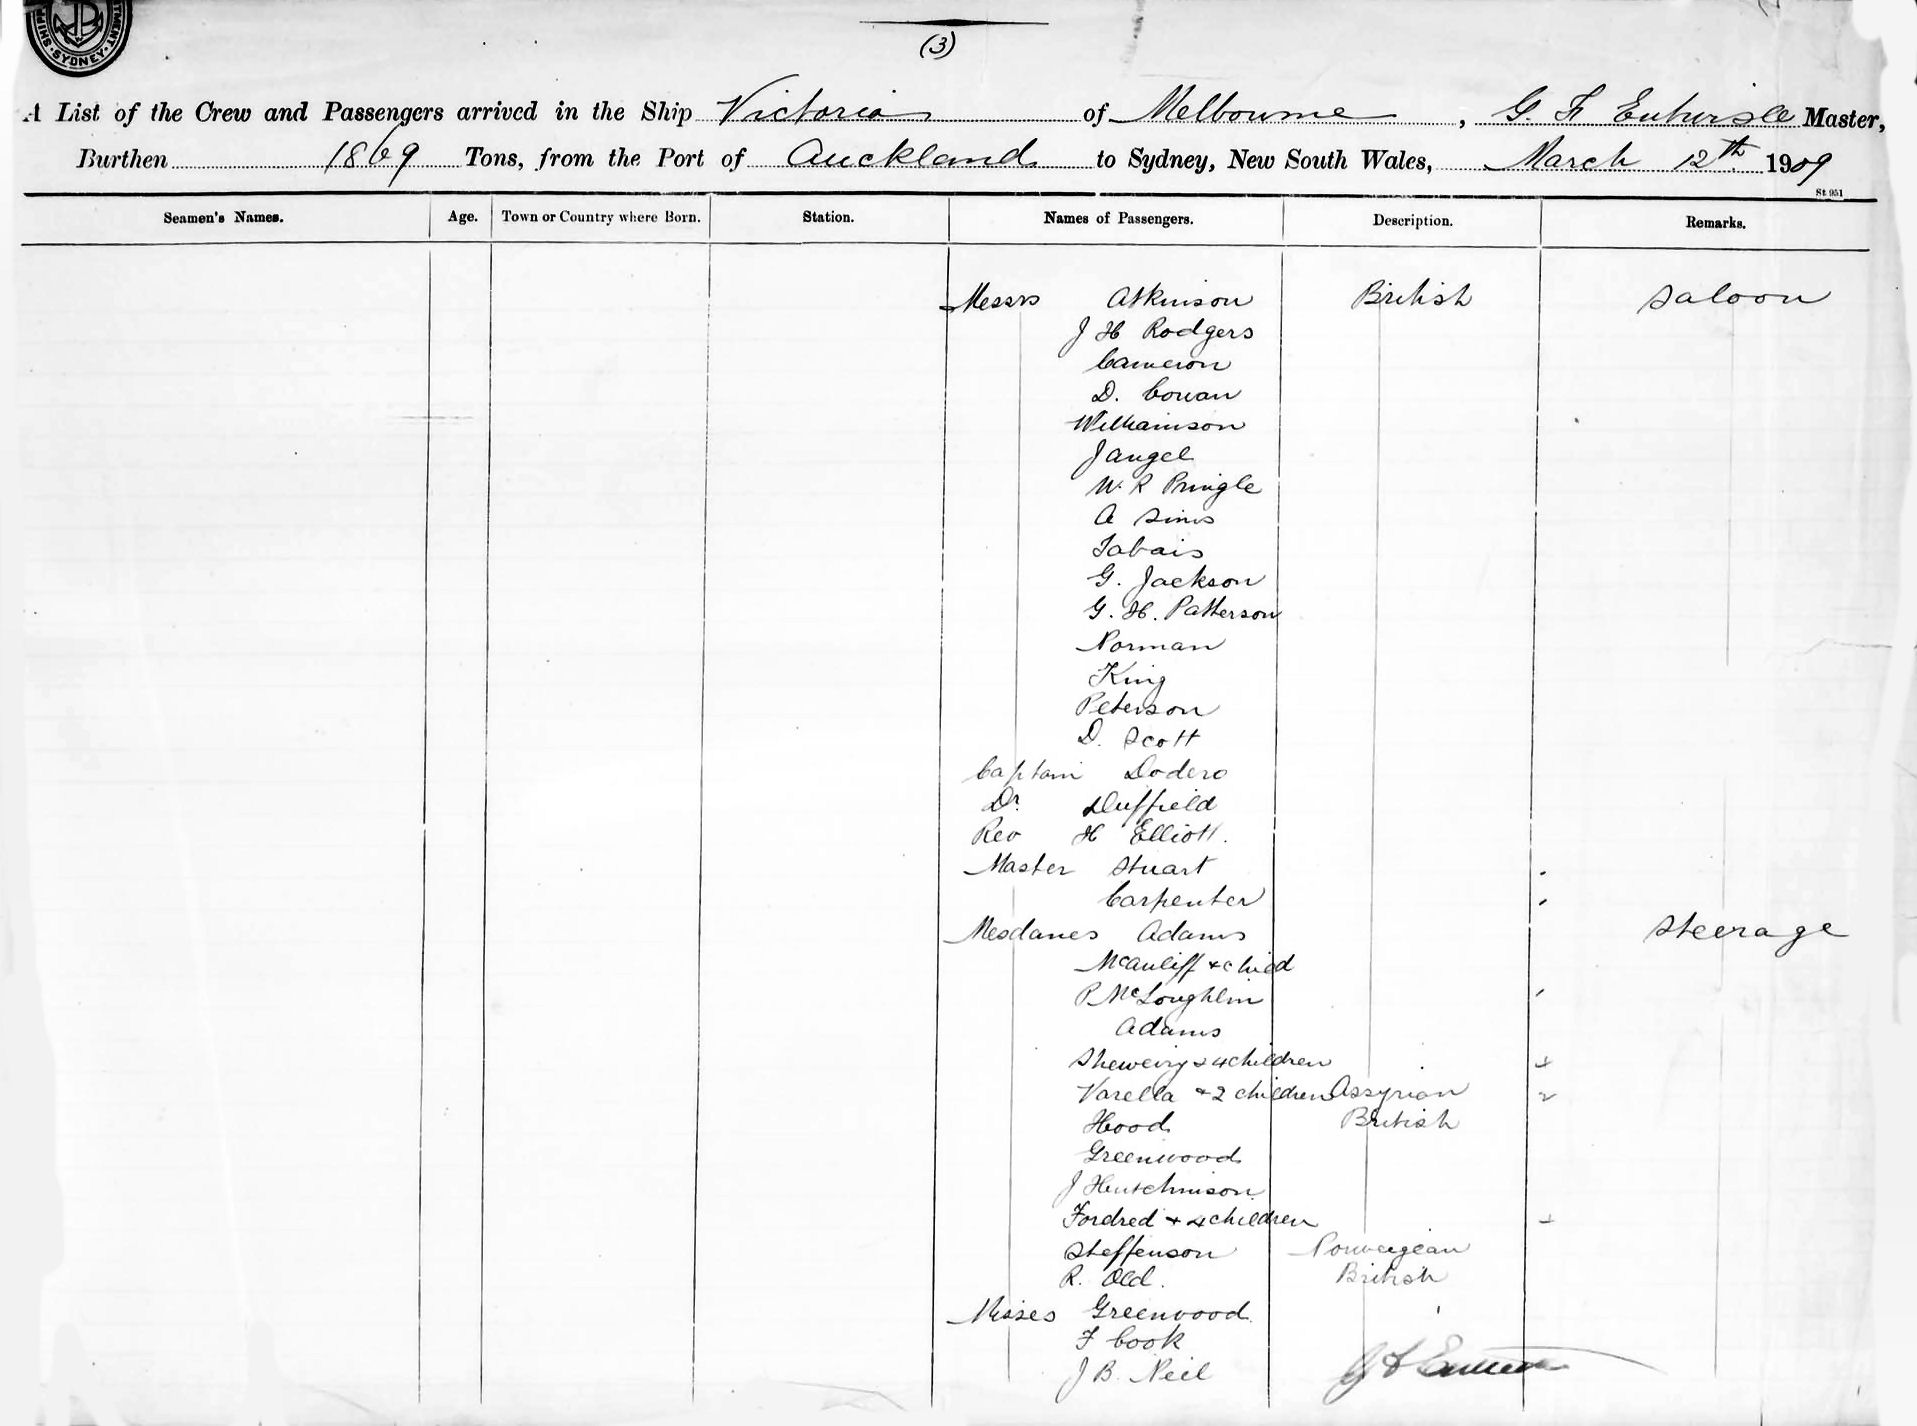 SYDNEY
(3)
A List of the Crew and Passengers arrived in the Ship Victoria of Melbourne, G. F. Entwisle Master,
Burthen 1869 Tons, from the Port of Auckland to Sydney, New South Wales, March 12th 1909
St 951
Seamen's Names. Age. Town or Country where Born. Station. Names of Passengers. Description. Remarks.
Messrs Atkinson British Saloon
J H Rodgers
Cameron
D. Cowan
Williamson
J Angel
W. R Pringle
A Sims
Tabais
G. Jackson
G. H. Patterson
Norman
King
Peterson
D. Scott
Captain Dodero
Dr. Duffield
Rev H Elliott.
Master Stuart
Carpenter
Mesdames Adams Steerage
McAuliff + child
P. McLoughlin
Adams
+ 4 children
Varella + 2 children Assyrian 2
Hood British
Greenwood
J Hutchinson
Fordred + 4 children
Steffenson Norwegean
R. Old. British
Misses Greenwood
F Cook
J B. Neil